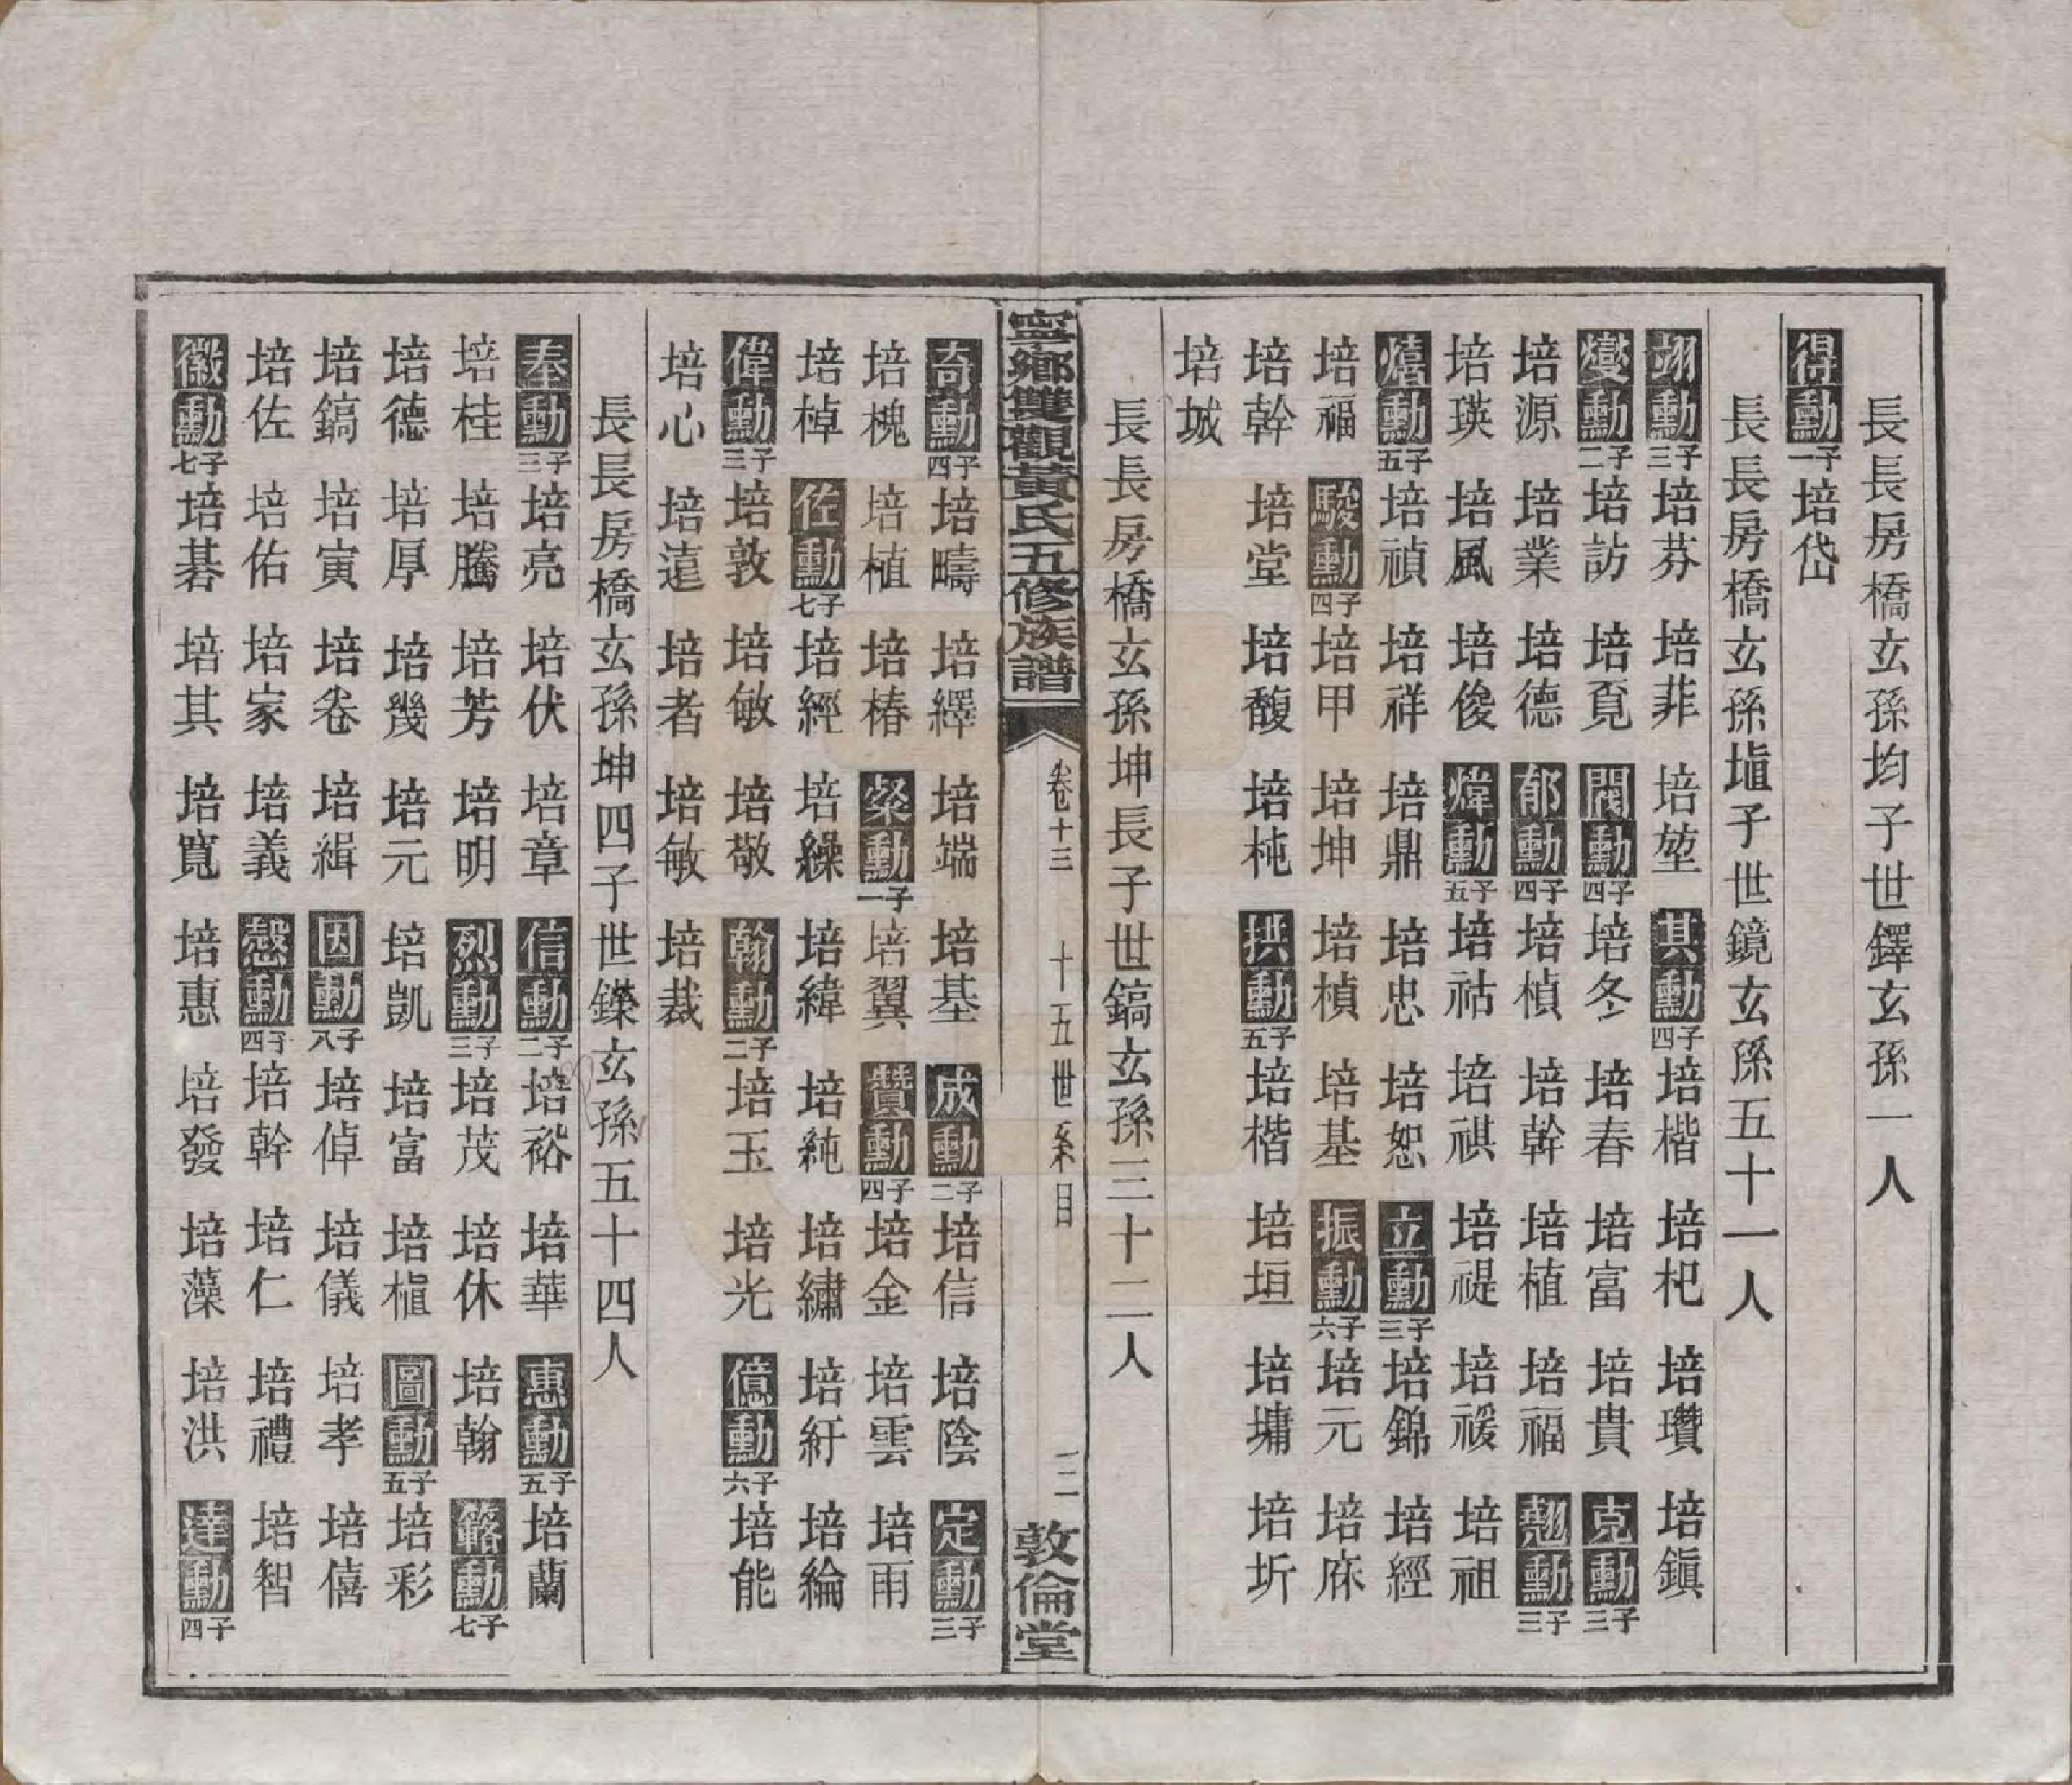 長長房橋玄孫均子世鐸玄孫一人
得勳一子培岱
長長房橋玄孫埴子世鏡玄孫五十一人
翊勳三子培芬培菲培堃其勳四子培楷培杞培瓚培鎭
燮勳二子培訪培覓閥勳四子培冬培春培富培貴克勳三子
培源培業培德郁勳四子培楨培幹培植培福翹勳三子
培瑛培風培俊煒勳五子培祜培祺培禔培禐培祖
熺勳五子培禎培祥培鼎培忠培恕立勳三子培錦培經
培福駿勳四子培甲培坤培楨培基振勳六子培元培庥
培幹培堂培馥培杶拱勳五子培楷培垣培墉培圻
培城
長長房橋玄孫坤長子世鎬玄孫三十二人
寧鄉雙觀黃氏五修族譜 卷十三 十五世系目 二 敦倫堂
奇勳四子培疇培繹培端培基成勳二子培信培陰定勳三子
培槐培植培椿粲勳一子培翼贊勳四子培金培雲培雨
培棹佐勳七子培經培繰培緯培純培繡培紆培綸
偉勳三子培敦培敏培敬翰勳二子培玉培光億勳六子培能
培心培薳培耆培敏培裁
長長房橋玄孫坤四子世鑅玄孫五十四人
奉勳三子培亮培伏培章信勳二子培裕培華惠勳五子培蘭
培桂培騰培芳培明烈勳三子培茂培休培翰簵勳七子
培德培厚培幾培元培凱培富培楦圖勳五子培彩
培鎬培寅培卷培緝因勳八子培倬培儀培孝培僖
培佐培佑培家培義慤勳四子培幹培仁培禮培智
徽勳七子培碁培其培寬培惠培發培藻培洪達勳四子